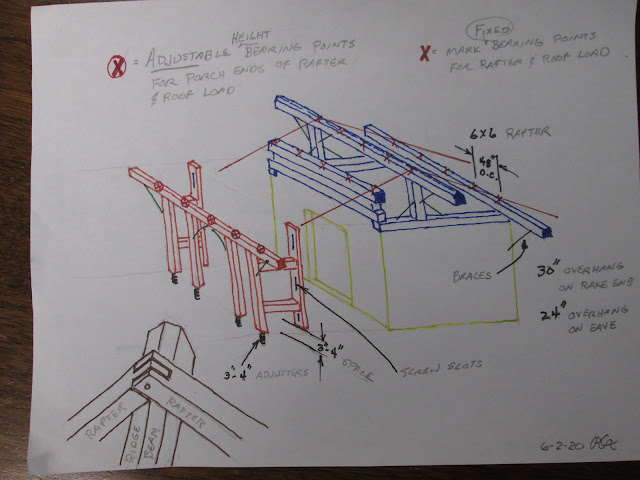 X = ADJUSTABLE HEIGHT BEARING POINTS
FOR PORCH ENDS OF RAFTER
& ROOF LOAD
X = MARK FIXED BEARING POINTS
FOR RAFTER & ROOF LOAD
6x6 RAFTER
48"
O.C.
BRACES
30" OVERHANG
ON RAKE END
24" OVERHANG
ON EAVE
3"-4" ADJUSTERS
3"-4"
SPACE
SCREW SLOTS
RAFTER
RAFTER
RIDGE
BEAM
6-2-20